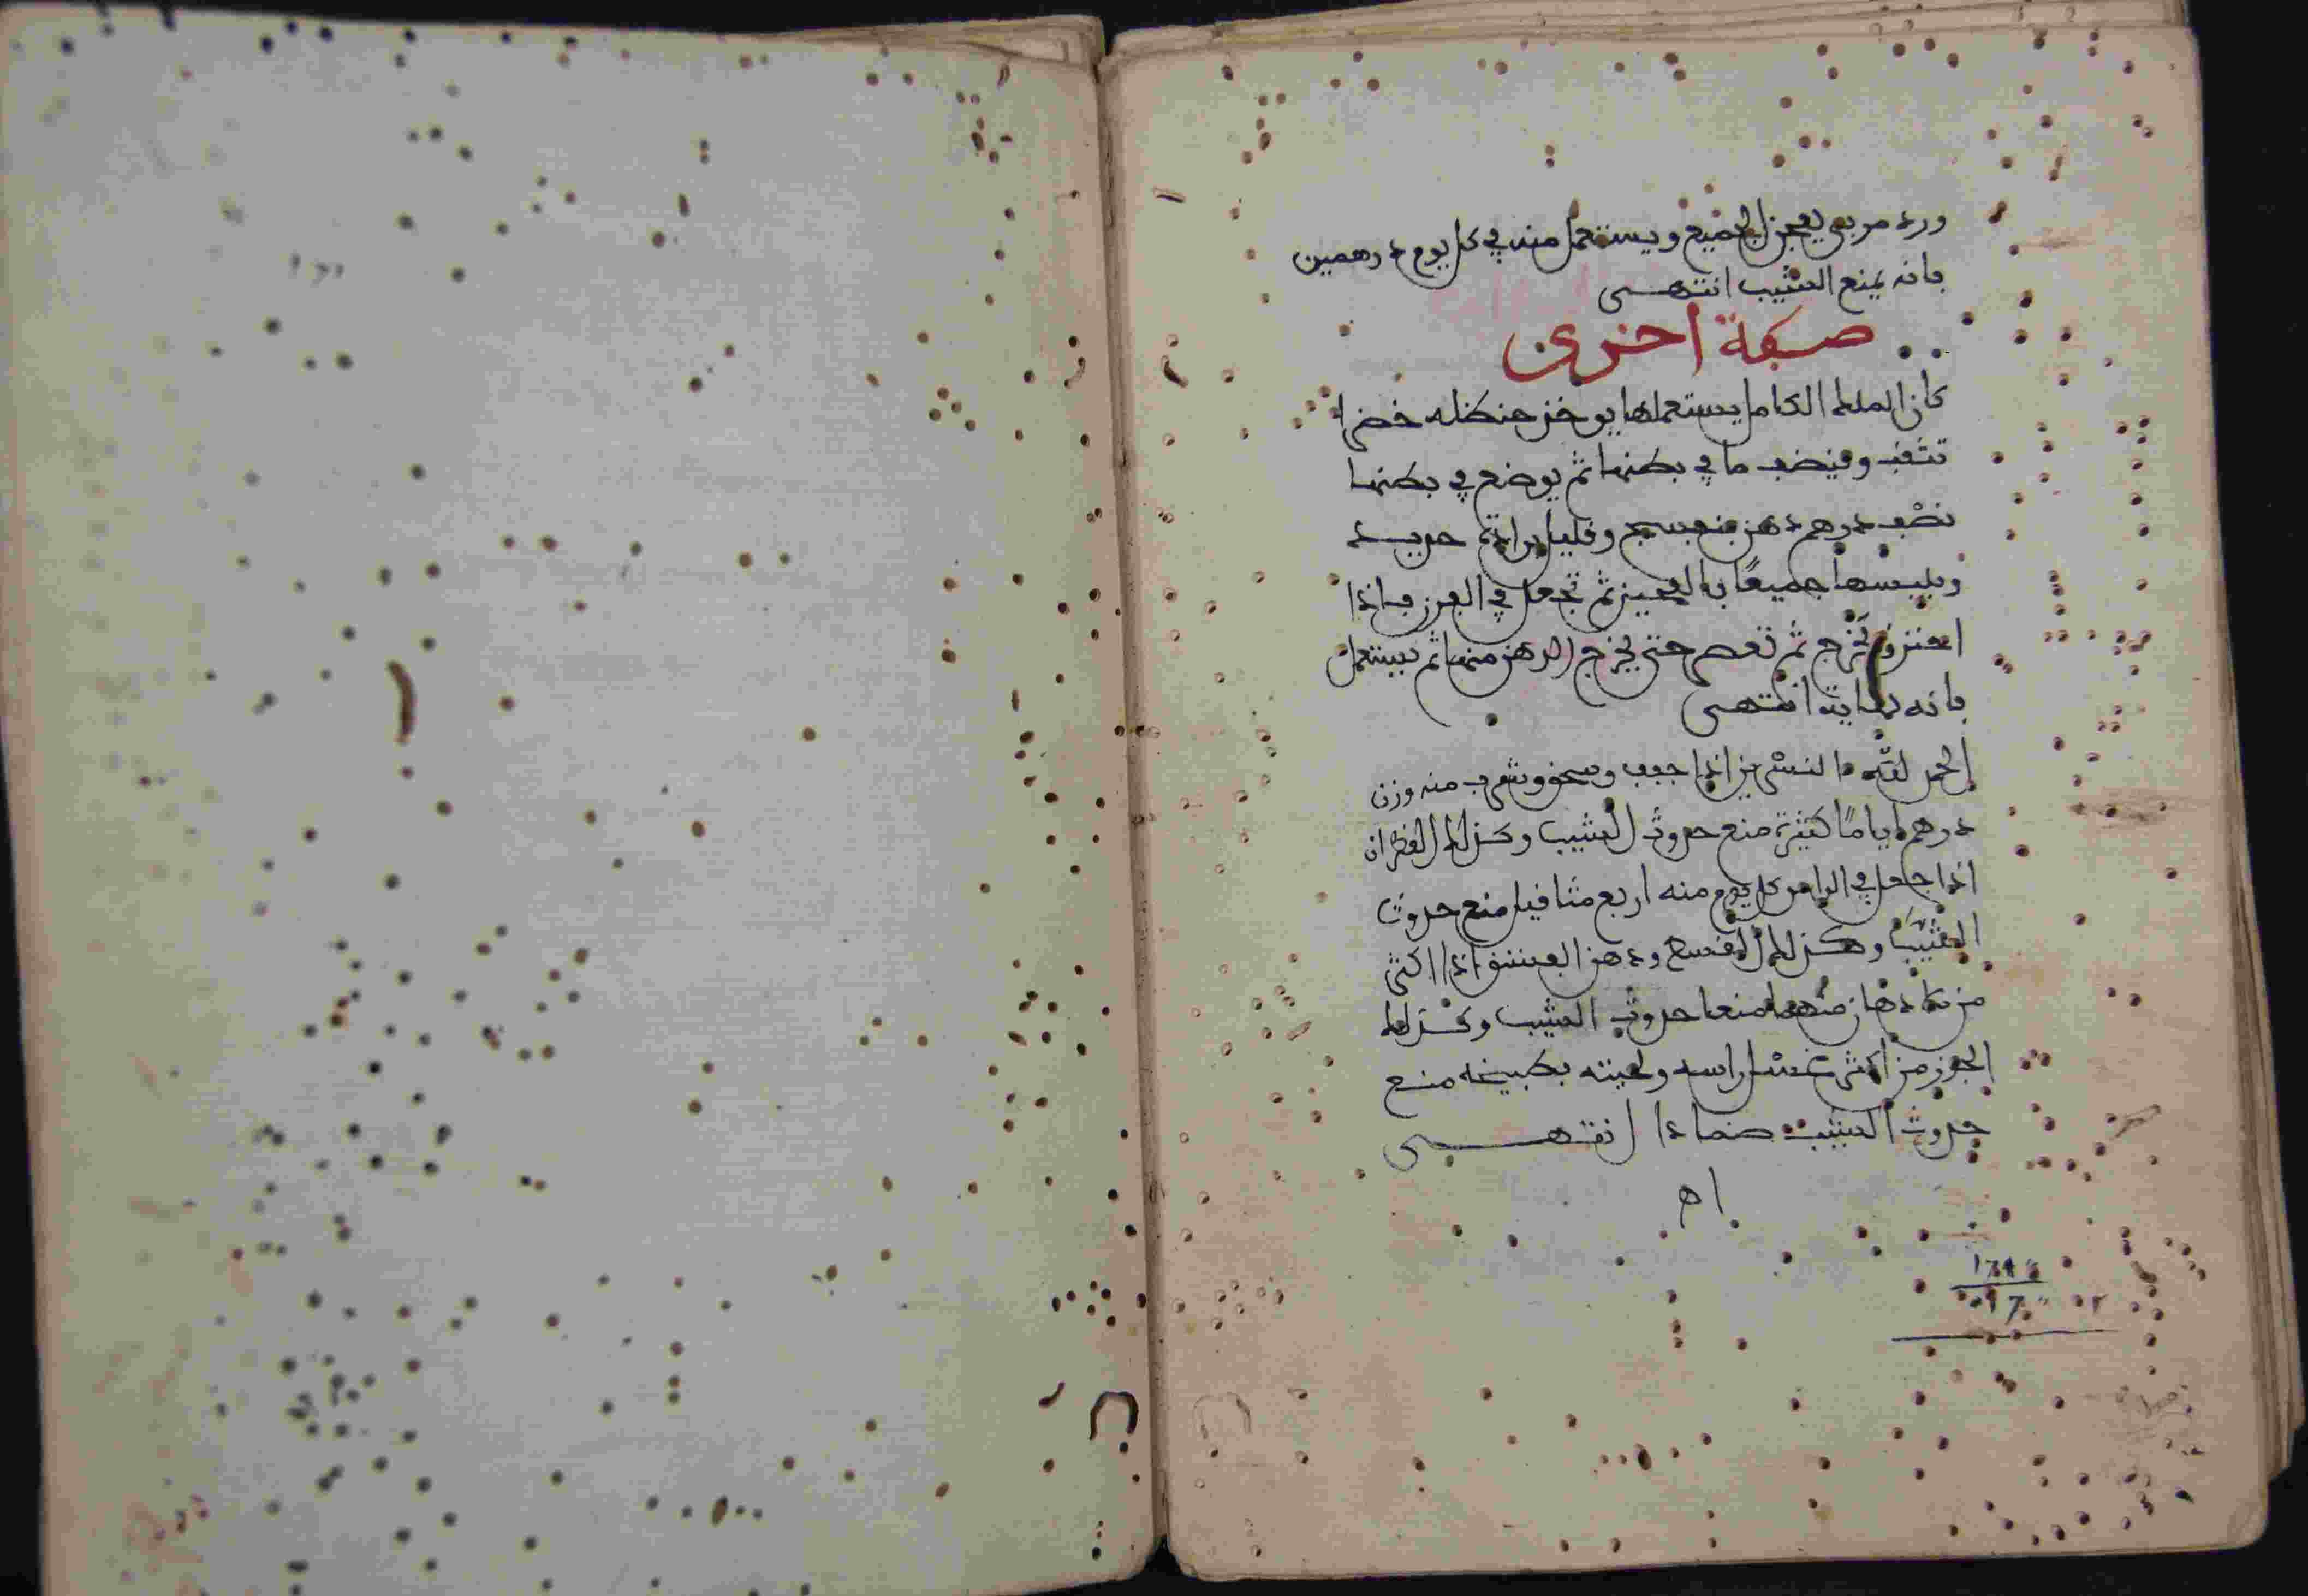 ورد مربى يعجن الجميع ويستعمل منه في كل يوم درهمين
فانه يمنع الشيب انتهى
صفة اخرى
كان الملك الكامل يستعملها يوخذ حنظله خضرا
تثقب وينضف ما في بطنها ثم يوضع في بطنها
نصف درهم دهن بنفسج وقليل براده حديد
ويلبسها جميعًا بالعجين ثم تجعل في الفرن فاذا
تخرج ثم تعصر حتى يخرج الدهن منها ثم يستعمل
فانه انتهى
الحمد لله اذا جفف وسحق وشرب منه وزن
درهم اياماً كثيرة منع حدوث الشيب وكذلك القطران
اذا جعل في الراس كل يوم منه اربع مثاقيل منع حدوث
الشيب وكذلك القسط ودهن الفستق اذا اكثر
من الادهان منهما منعا حدوث الشيب وكذلك
الجوز من اكثر غسل راسه ولحيته بطبيخه منع
حدوث الشيب ضمادا انتهى
اه